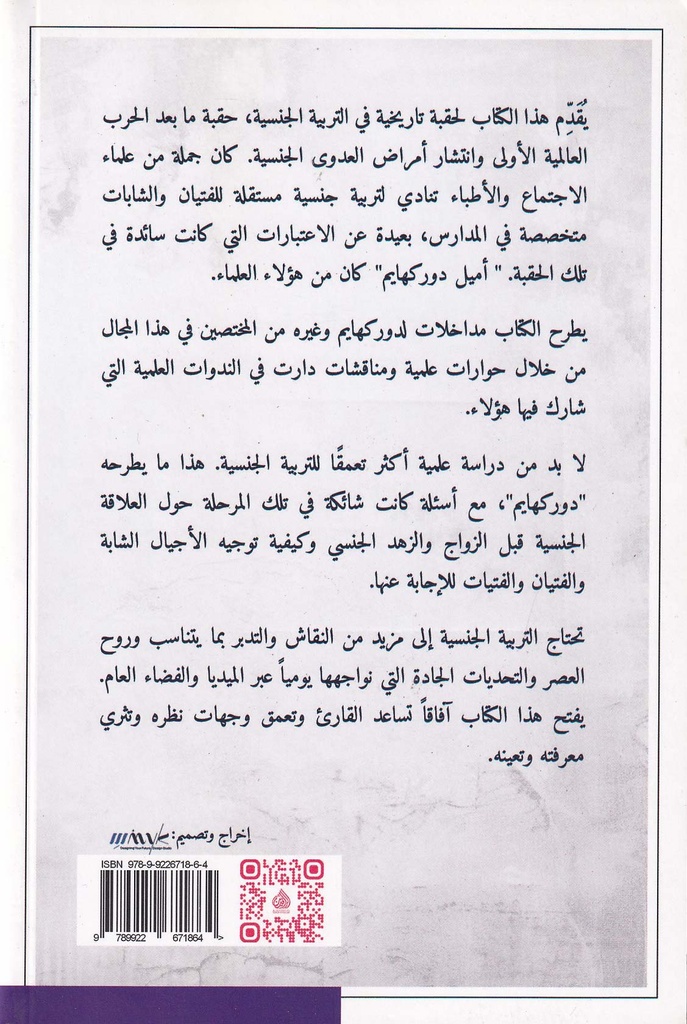 يُقَدِّم هذا الكتاب لحقبة تاريخية في التربية الجنسية، حقبة ما بعد الحرب
العالمية الأولى وانتشار أمراض العدوى الجنسية. كان جملة من علماء
الاجتماع والأطباء تنادي لتربية جنسية مستقلة للفتيان والشابات
متخصصة في المدارس، بعيدة عن الاعتبارات التي كانت سائدة في
تلك الحقبة. " أميل دوركهايم" كان من هؤلاء العلماء.
يطرح الكتاب مداخلات لدوركهايم وغيره من المختصين في هذا المجال
من خلال حوارات علمية ومناقشات دارت في الندوات العلمية التي
شارك فيها هؤلاء.
لا بد من دراسة علمية أكثر تعمقًا للتربية الجنسية. هذا ما يطرحه
"دوركهايم"، مع أسئلة كانت شائكة في تلك المرحلة حول العلاقة
الجنسية قبل الزواج والزهد الجنسي وكيفية توجيه الأجيال الشابة
والفتيان والفتيات للإجابة عنها.
تحتاج التربية الجنسية إلى مزيد من النقاش والتدبر بما يتناسب وروح
العصر والتحديات الجادة التي نواجهها يومياً عبر الميديا والفضاء العام.
يفتح هذا الكتاب آفاقاً تساعد القارئ وتعمق وجهات نظره وتثري
معرفته وتعينه.
إخراج وتصميم:
ISBN 978-9-9226718-6-4
9 789922 671864 >